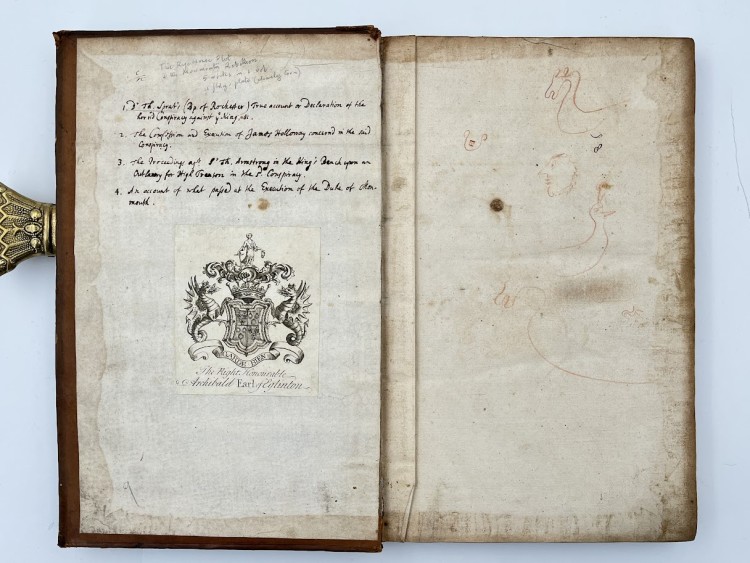 The Ryehouse Plot
& the Monmouth Rebellion
4 works in 1 vol
1 fldg. plate (cleanly torn)
1. Dr Th. Sprat's (Bp of Rochester) True account or Declaration of the
horrid Conspiracy against ye King, &c.
2. The Confession and Execution of James Holloway concernd in the said
Conspiracy.
3. The Proceedings agst Sr Th. Armstrong in the King's Bench upon an
Outlawry for High Treason in the sd Conspiracy.
4. An account of what passed at the Execution of the Duke of Mon-
mouth.
GARDE BIEN
The Right Honourable
Archibald Earl of Eglinton
8
9